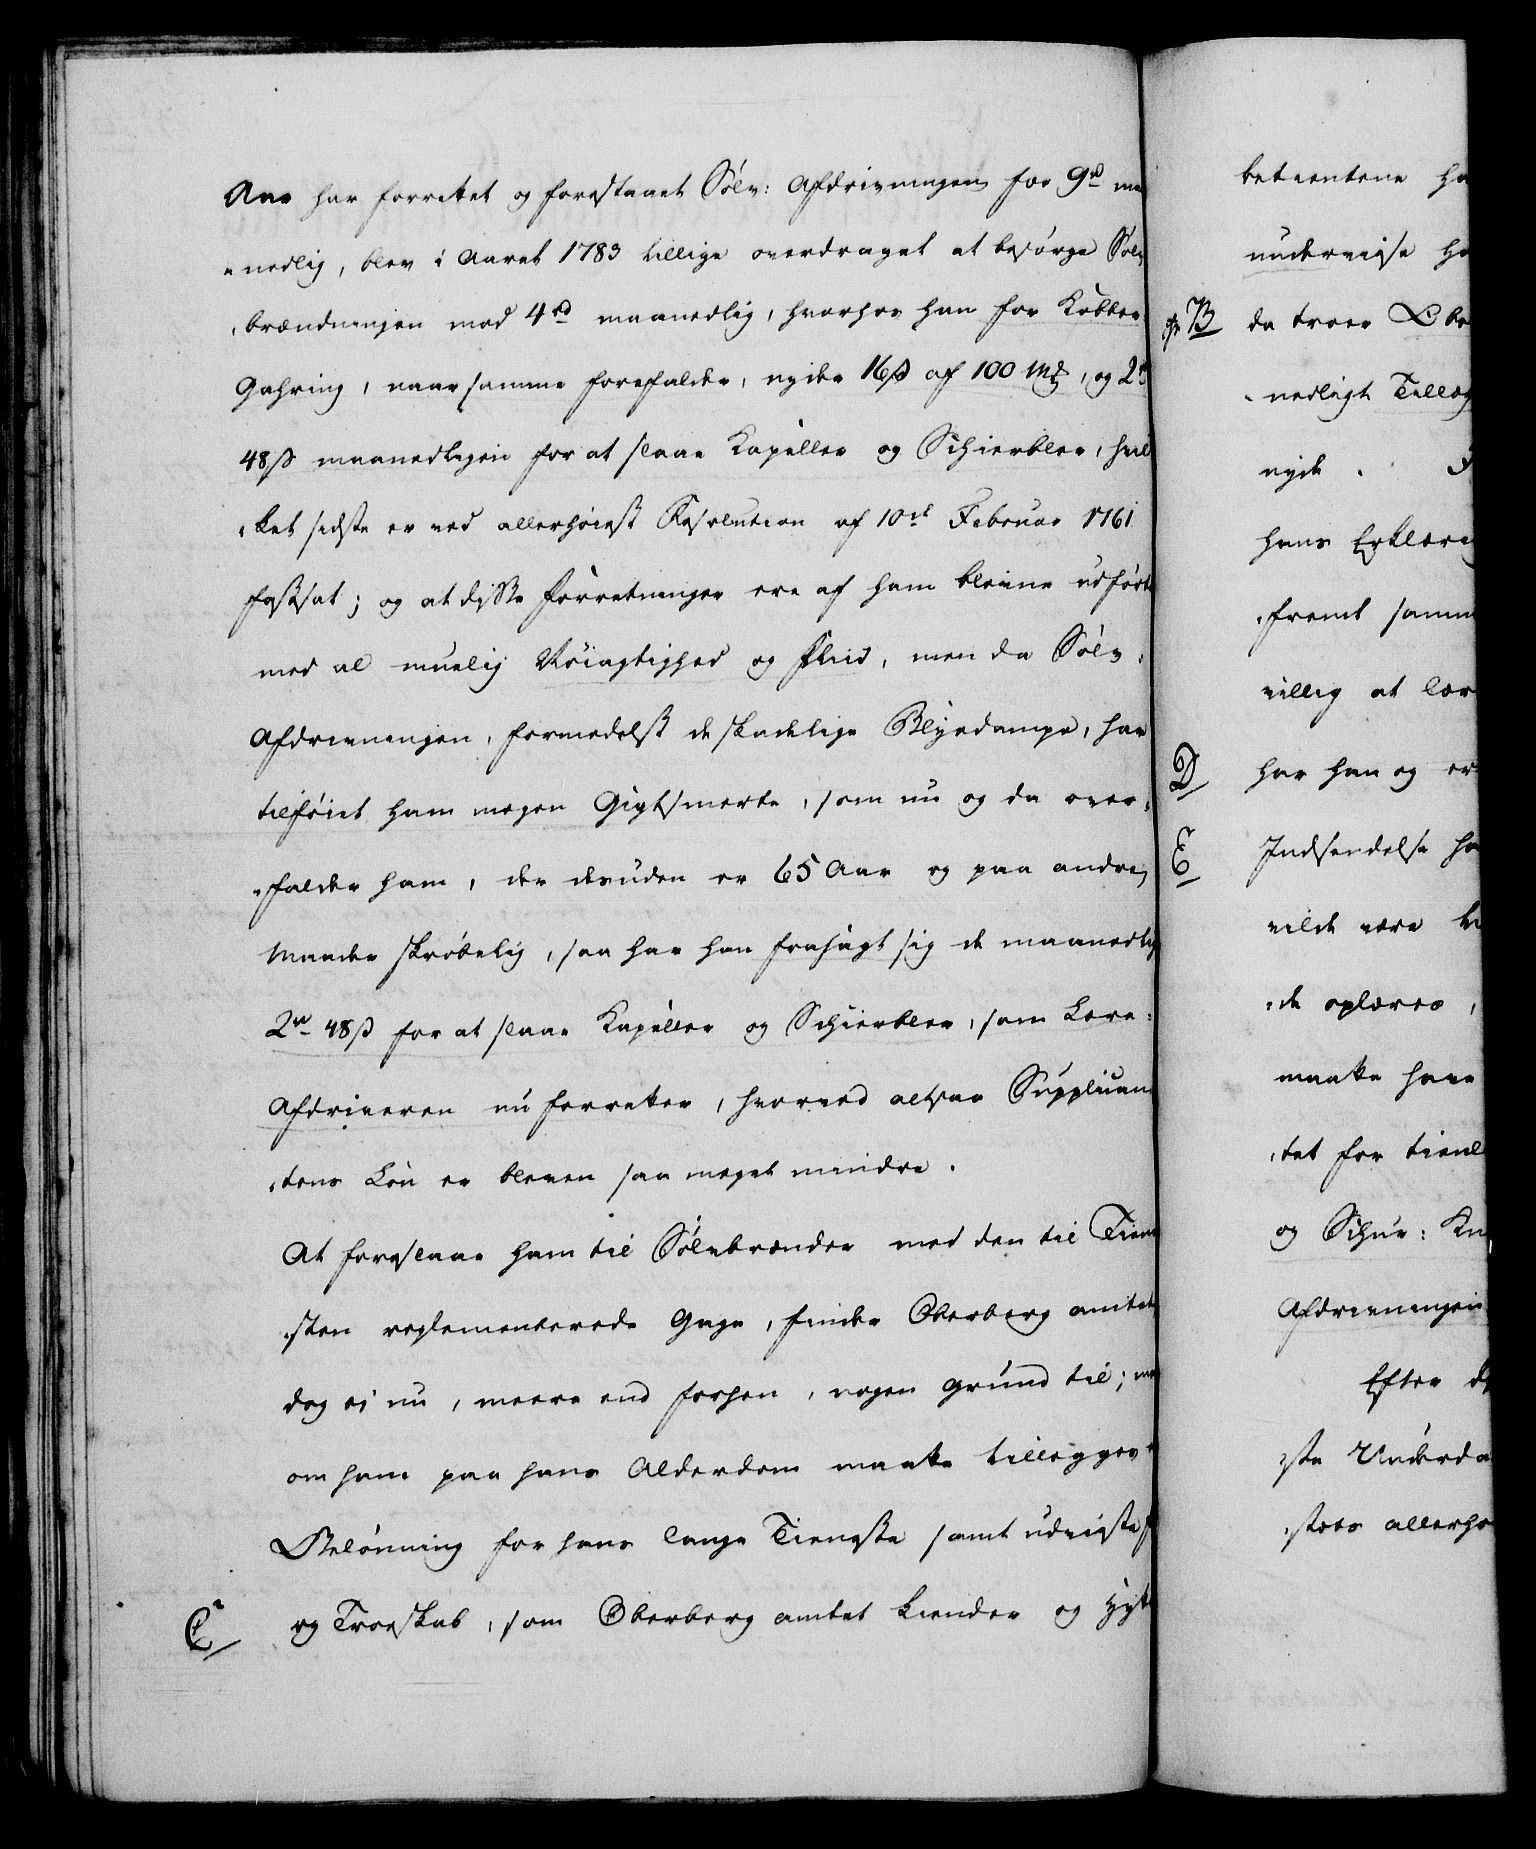 Aar har forrettet og forestaaet Sölv: Afdrivningen for 9rd ma
nedlig, blev i Aaret 1783 tillige overdraget at besörge Sölv
brændningen med 4rd maanedlig, hvorhos han for Kobber
Gahring, naar samme forefalder, nyder 16ß af 100 Mk, og 2rd
48ß maanedligen for at slaae Kapeller og Schierbler, hvil
ket sidste er ved allerhöiest Resolution af 10de Februar 1761
fastsat; og at disse Forretninger ere af ham blevne udförte
med al muelig Nöiagtighed og Fliid, men da Sölv
Afdrivningen, formedelst de skadelige Blÿedampe, har
tilföiet ham megen Gigtsmerte, som nu og da over
falder ham, der desuden er 65 Aar og paa andre
Maader skröbelig, saa har han frasagt sig de maanedlig
2rd 48ß for at slaae Kapeller og Schierbler, som Lære
Afdriveren nu forretter, hvorved altsaa Supplican
tens Lön er bleven saa meget mindre.
At foreslaae ham til Sölvbrænder med den til Tiene
sten reglementerede Gage, finder Oberberg amtet
dog ei nu, meere end forhen, nogen Grund til; men
om ham paa hans Alderdom maatte tillægges
Belönning for hans lange Tieneste samt udviste
C og Troeskab, som Oberberg amtet kiender og
betientene ha
underviise ha
B da troer Obe
nedligt Tillæg
nyde.
hans Erklæri
fremt samm
villig at lær
D har han og er
E Indsendelse ha
vilde være
de oplæres,
maatte have
tet for tienl
og Schur: Kn
Afdrivningen
Efter
ste Underda
stets allerhö